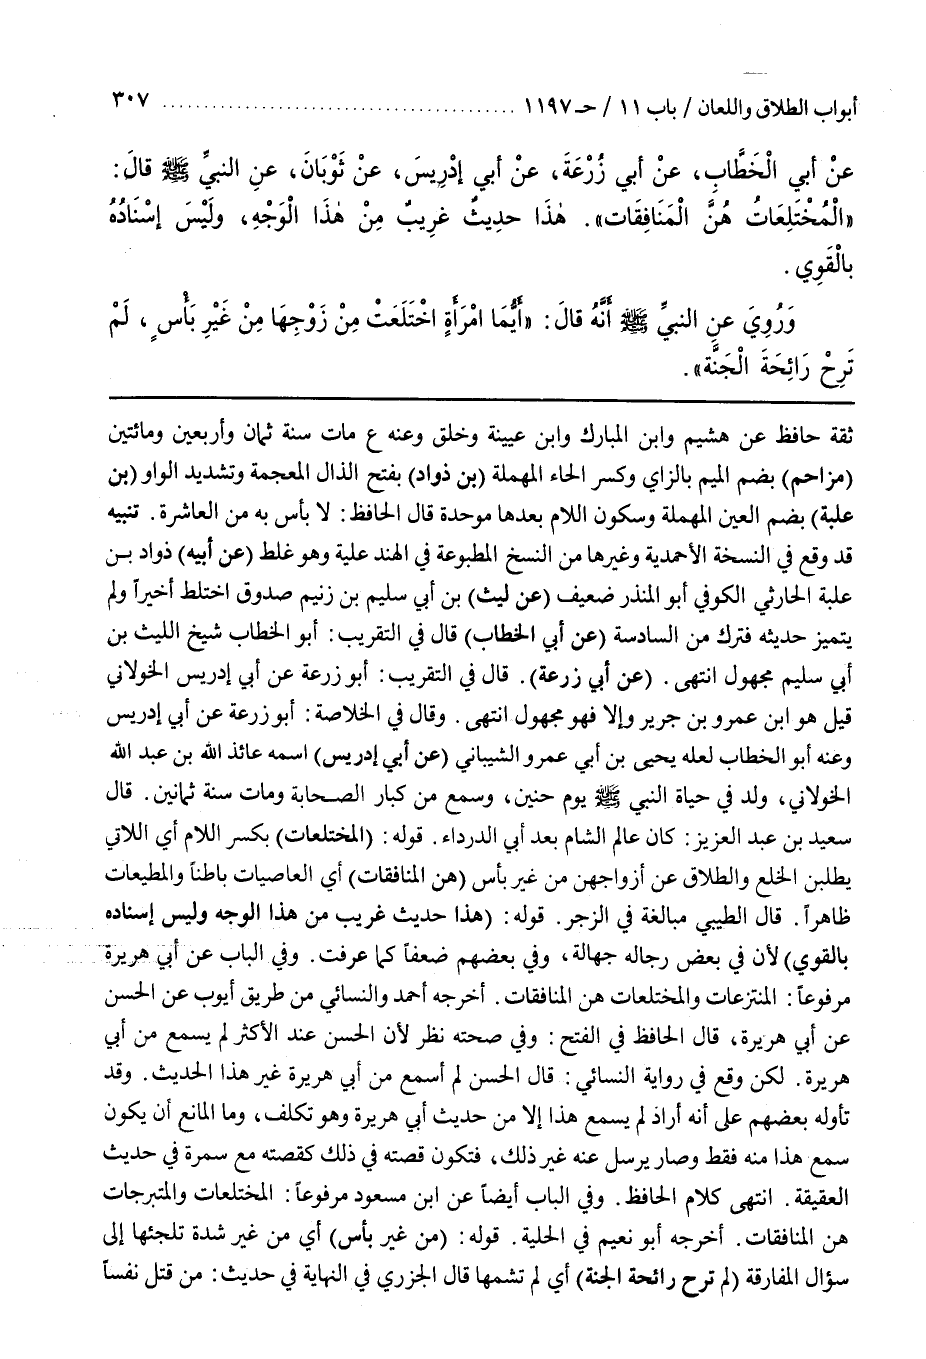 أبواب الطلاق واللعان / باب ١١ / حـ ١١٩٧ ........................................ ٣٠٧
عنْ أبي الْخَطَّابِ، عنْ أبي زُرْعَةَ، عنْ أبي إدْرِيسَ، عنْ ثَوْبَانَ، عنِ النبيِّ ﷺ قالَ:
«الْمُخْتَلِعَاتُ هُنَّ الْمَنَافِقَات». هٰذَا حديثٌ غريبٌ مِنْ هٰذَا الْوَجْهِ، ولَيْسَ إسْنَادُهُ
بالْقَوِي.
وَرُوِيَ عنِ النبيِّ ﷺ أنَّهُ قالَ: «أَيُّمَا امْرَأَةٍ اخْتَلَعَتْ مِنْ زَوْجِهَا مِنْ غَيْرِ بَأْسٍ، لَمْ
تَرِحْ رَائِحَةَ الْجَنَّة».
ثقة حافظ عن هشيم وابن المبارك وابن عيينة وخلق وعنه ع مات سنة ثمان وأربعين ومائتين
(مزاحم) بضم الميم بالزاي وكسر الحاء المهملة (بن ذواد) بفتح الذال المعجمة وتشديد الواو (بن
علبة) بضم العين المهملة وسكون اللام بعدها موحدة قال الحافظ: لا بأس به من العاشرة. تنبيه
قد وقع في النسخة الأحمدية وغيرها من النسخ المطبوعة في الهند علية وهو غلط (عن أبيه) ذواد بـن
علبة الحارثي الكوفي أبو المنذر ضعيف (عن ليث) بن أبي سليم بن زنيم صدوق اختلط أخيراً ولم
يتميز حديثه فترك من السادسة (عن أبي الخطاب) قال في التقريب: أبو الخطاب شيخ الليث بن
أبي سليم مجهول انتهى. (عن أبي زرعة). قال في التقريب: أبو زرعة عن أبي إدريس الخولاني
قيل هو ابن عمرو بن جرير وإلا فهو مجهول انتهى. وقال في الخلاصة: أبو زرعة عن أبي إدريس
وعنه أبو الخطاب لعله يحيى بن أبي عمرو الشيباني (عن أبي إدريس) اسمه عائذ الله بن عبد الله
الخولاني، ولد في حياة النبي ﷺ يوم حنين، وسمع من كبار الصـحابة ومات سنة ثمانين. قال
سعيد بن عبد العزيز: كان عالم الشام بعد أبي الدرداء. قوله: (المختلعات) بكسر اللام أي اللاتي
يطلبن الخلع والطلاق عن أزواجهن من غير بأس (هن المنافقات) أي العاصيات باطناً والمطيعات
ظاهراً. قال الطيبي مبالغة في الزجر. قوله: (هذا حديث غريب من هذا الوجه وليس إسناده
بالقوي) لأن في بعض رجاله جهالة، وفي بعضهم ضعفاً كما عرفت. وفي الباب عن أبي هريرة
مرفوعاً: المنتزعات والمختلعات هن المنافقات. أخرجه أحمد والنسائي من طريق أيوب عن الحسن
عن أبي هريرة، قال الحافظ في الفتح: وفي صحته نظر لأن الحسن عند الأكثر لم يسمع من أبي
هريرة. لكن وقع في رواية النسائي: قال الحسن لم أسمع من أبي هريرة غير هذا الحديث. وقد
تأوله بعضهم على أنه أراد لم يسمع هذا إلا من حديث أبي هريرة وهو تكلف، وما المانع أن يكون
سمع هذا منه فقط وصار يرسل عنه غير ذلك، فتكون قصته في ذلك كقصته مع سمرة في حديث
العقيقة. انتهى كلام الحافظ. وفي الباب أيضاً عن ابن مسعود مرفوعاً: المختلعات والمتبرجات
هن المنافقات. أخرجه أبو نعيم في الحلية. قوله: (من غير بأس) أي من غير شدة تلجئها إلى
سؤال المفارقة (لم ترح رائحة الجنة) أي لم تشمها قال الجزري في النهاية في حديث: من قتل نفساً